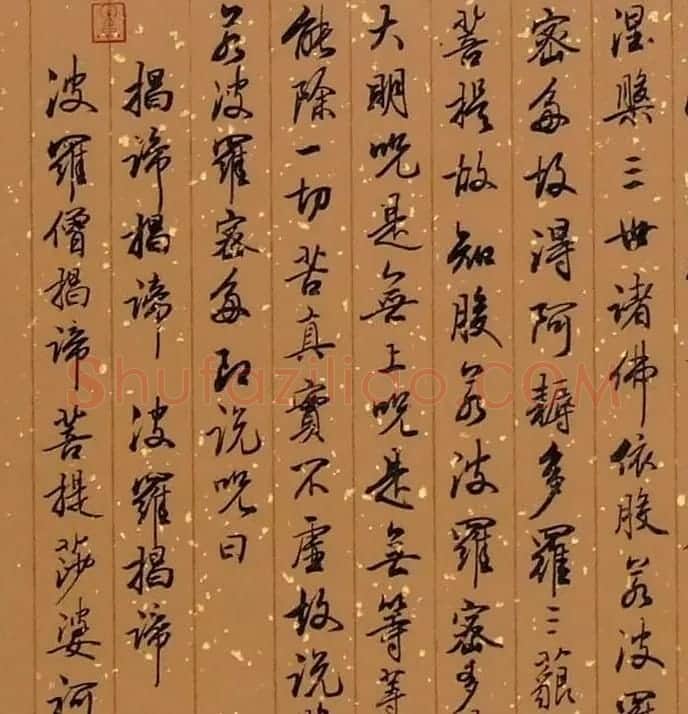 涅槃三世諸佛依般若波羅
密多故得阿耨多羅三藐
菩提故知般若波羅密多
大明呪是無上呪是無等等
能除一切苦真實不虛故説
若波羅密多即説呪曰
揭諦揭諦 波羅揭諦
波羅僧揭諦菩提莎婆訶
Shufaziliao.COM